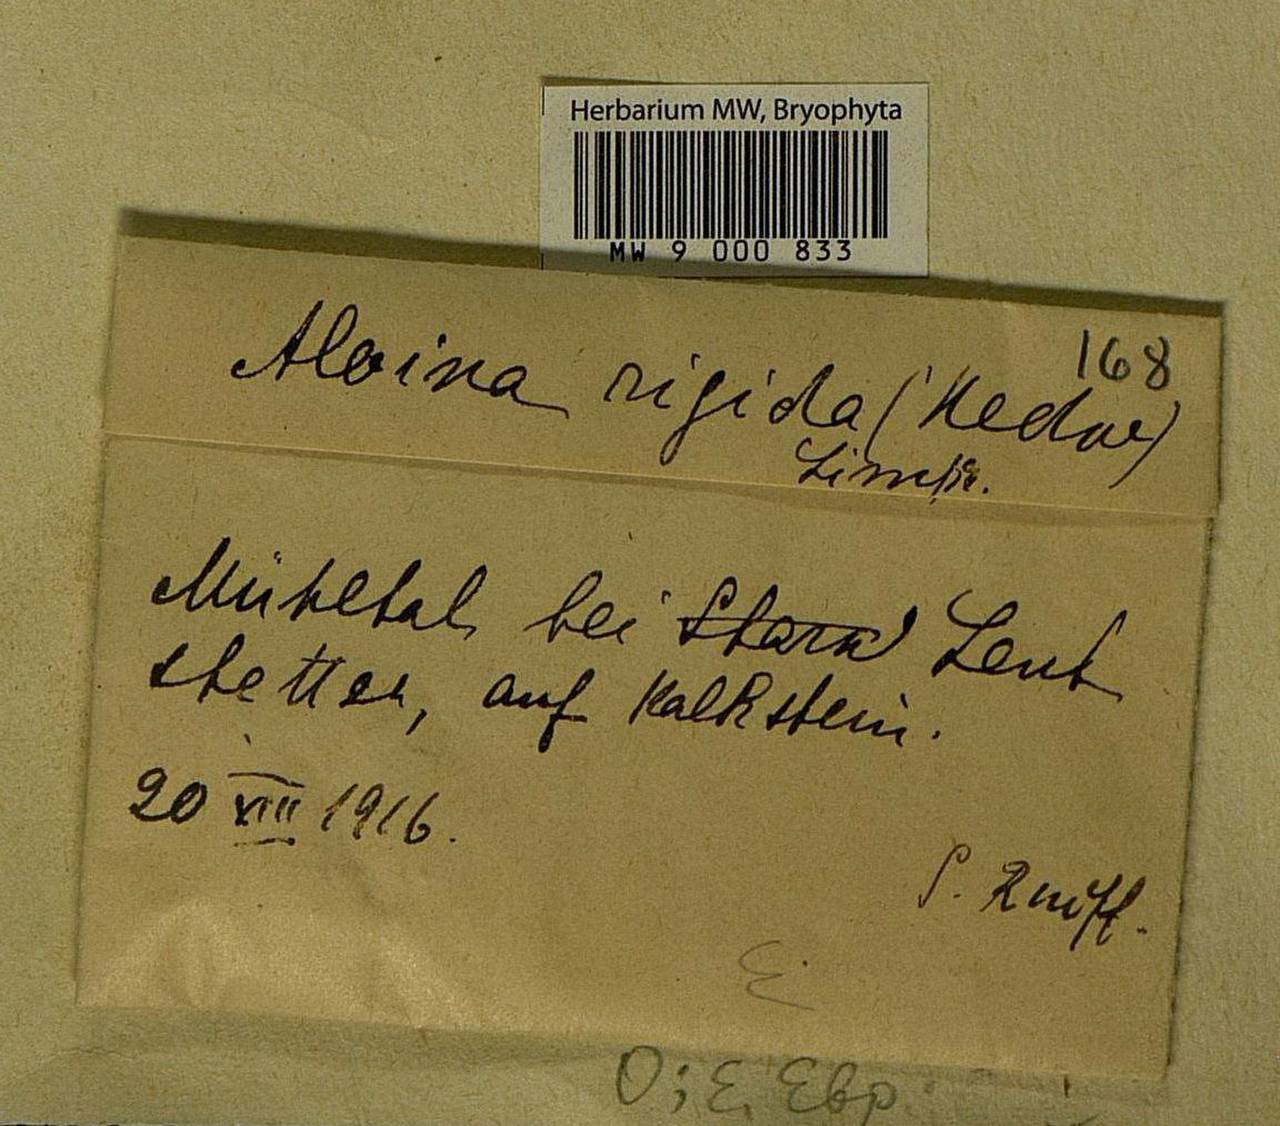 Herbarium MW, Bryophyta
MW 9 000 833
168
Aloina rigida (Hedw)
Limpr.
Mühltal bei Starn Leut
stetten, auf Kalkstein.
20 VIII 1916.
E.
O; E. Евр.